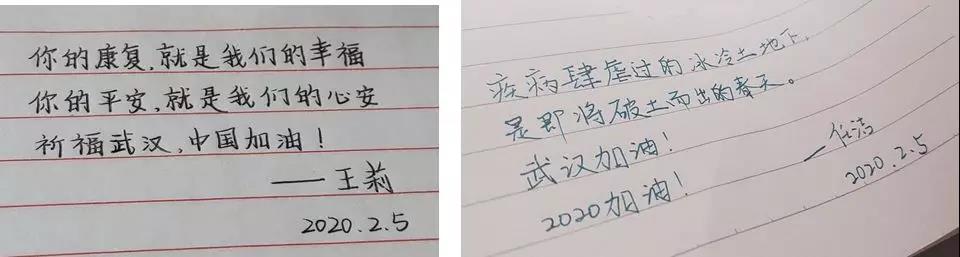 你的康复,就是我们的幸福
你的平安,就是我们的心安
祈福武汉,中国加油!
——王莉
2020.2.5
疾病肆虐过的冰冷土地下,
是即将破土而出的春天。
武汉加油!
2020加油!
—任洁
2020.2.5